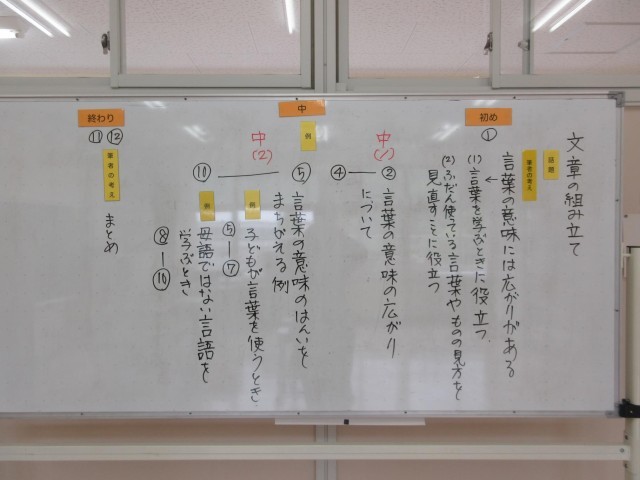 文章の組み立て
初め
①
話題
筆者の考え
言葉の意味には広がりがある
←
(1)言葉を学ぶときに役立つ
(2)ふだん使っている言葉やものの見方を
見直すことに役立つ
中
例
中
(1)
②―④
言葉の意味の広がり
について
中
(2)
⑤―⑩
言葉の意味のはんいを
まちがえる例
例
子どもが言葉を使うとき
⑤―⑦
例
母語ではない言語を
学ぶとき
⑧―⑩
終わり
⑪⑫
筆者の考え
まとめ